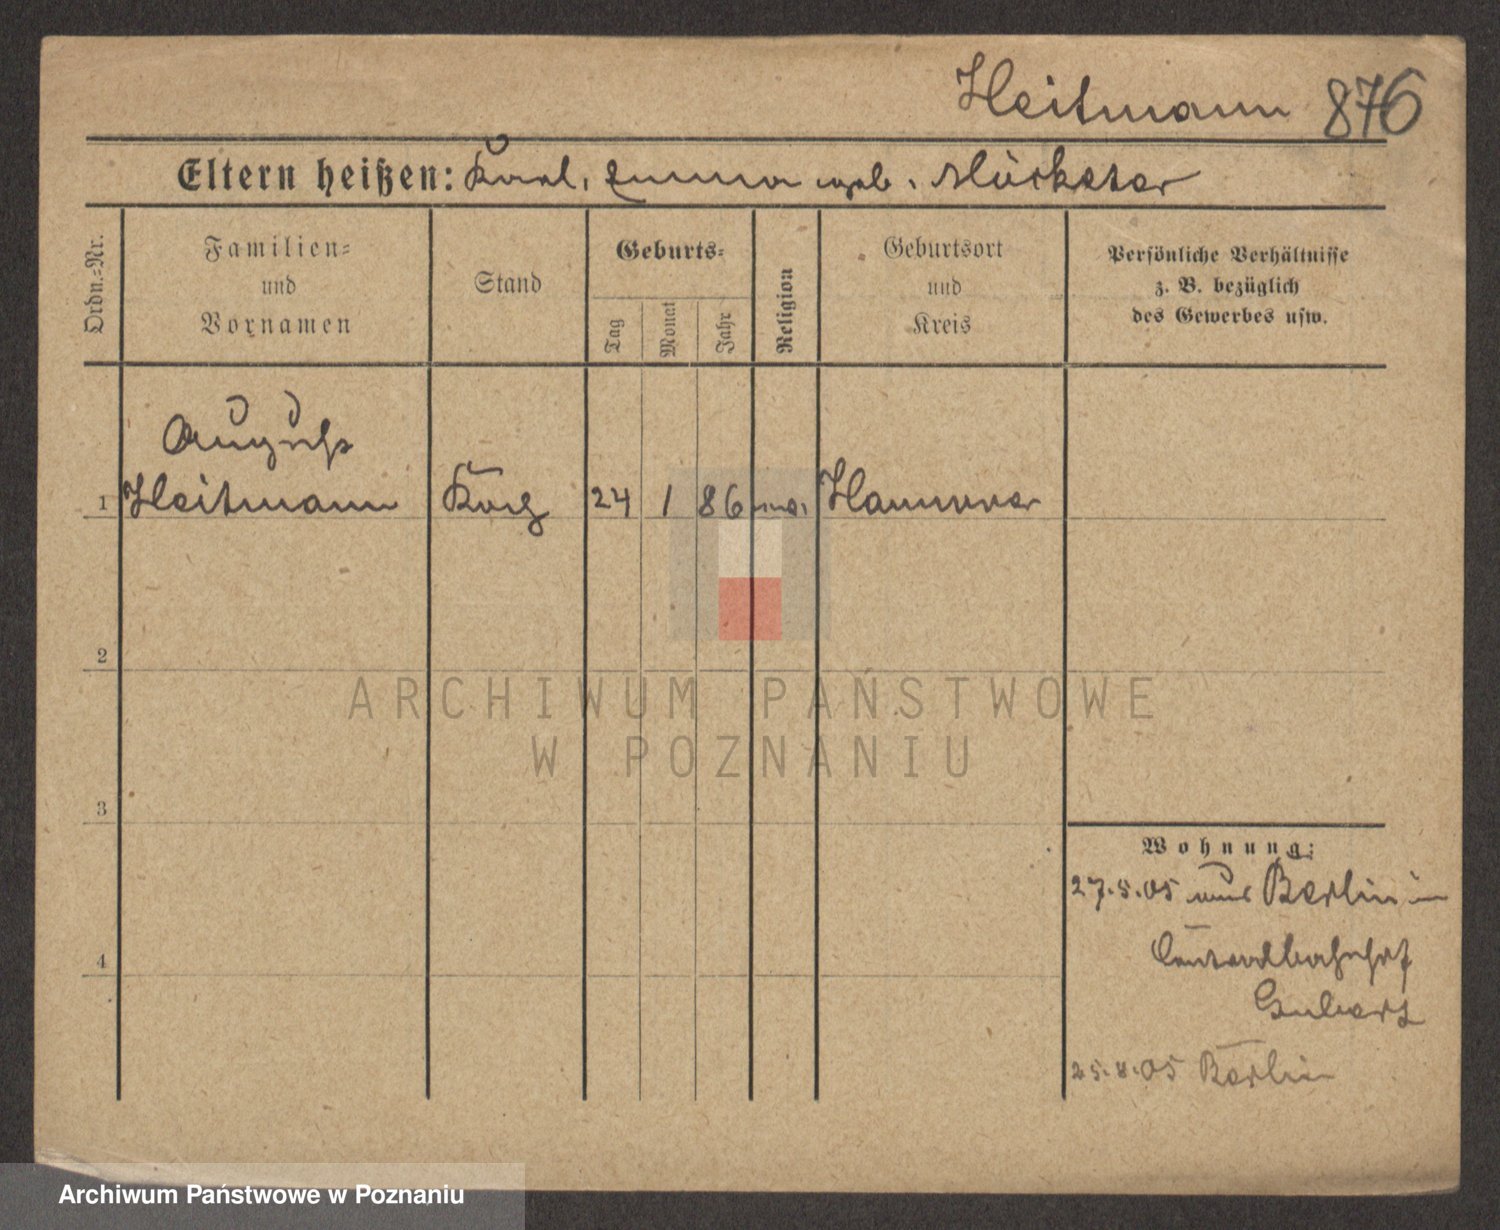 Heitmann 876
Eltern heißen: Karl, Emma geb.
Ordn.=Nr.
Familien=
und
Vornamen
Stand
Geburts=
Tag
Monat
Jahr
Religion
Geburtsort
und
Kreis
Persönliche Verhältnisse
z. B. bezüglich
des Gewerbes usw.
August
1 Heitmann 24 1 86 Hannover
2
3
4
Wohnung:
27.5.05 aus Berlin in
Centralbahnhof
25.8.05 Berlin
ARCHIWUM PAŃSTWOWE
W POZNANIU
Archiwum Państwowe w Poznaniu